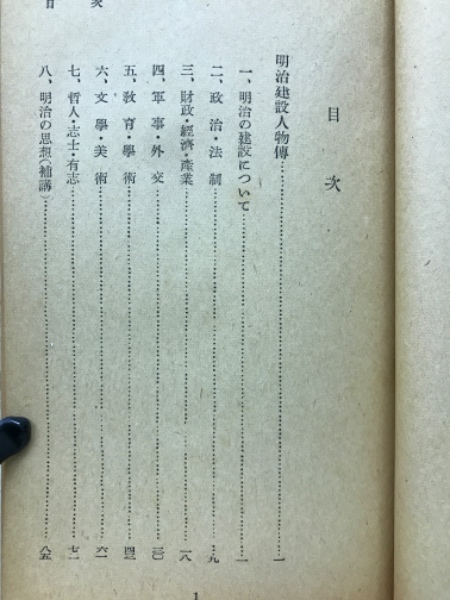 目次
目次
明治建設人物傳……一
一、明治の建設について……一
二、政治・法制……九
三、財政・經濟・產業……一八
四、軍事・外交……三〇
五、敎育・學術……四三
六、文學・美術……六一
七、哲人・志士・有志……七二
八、明治の思想（補講）……八五
1